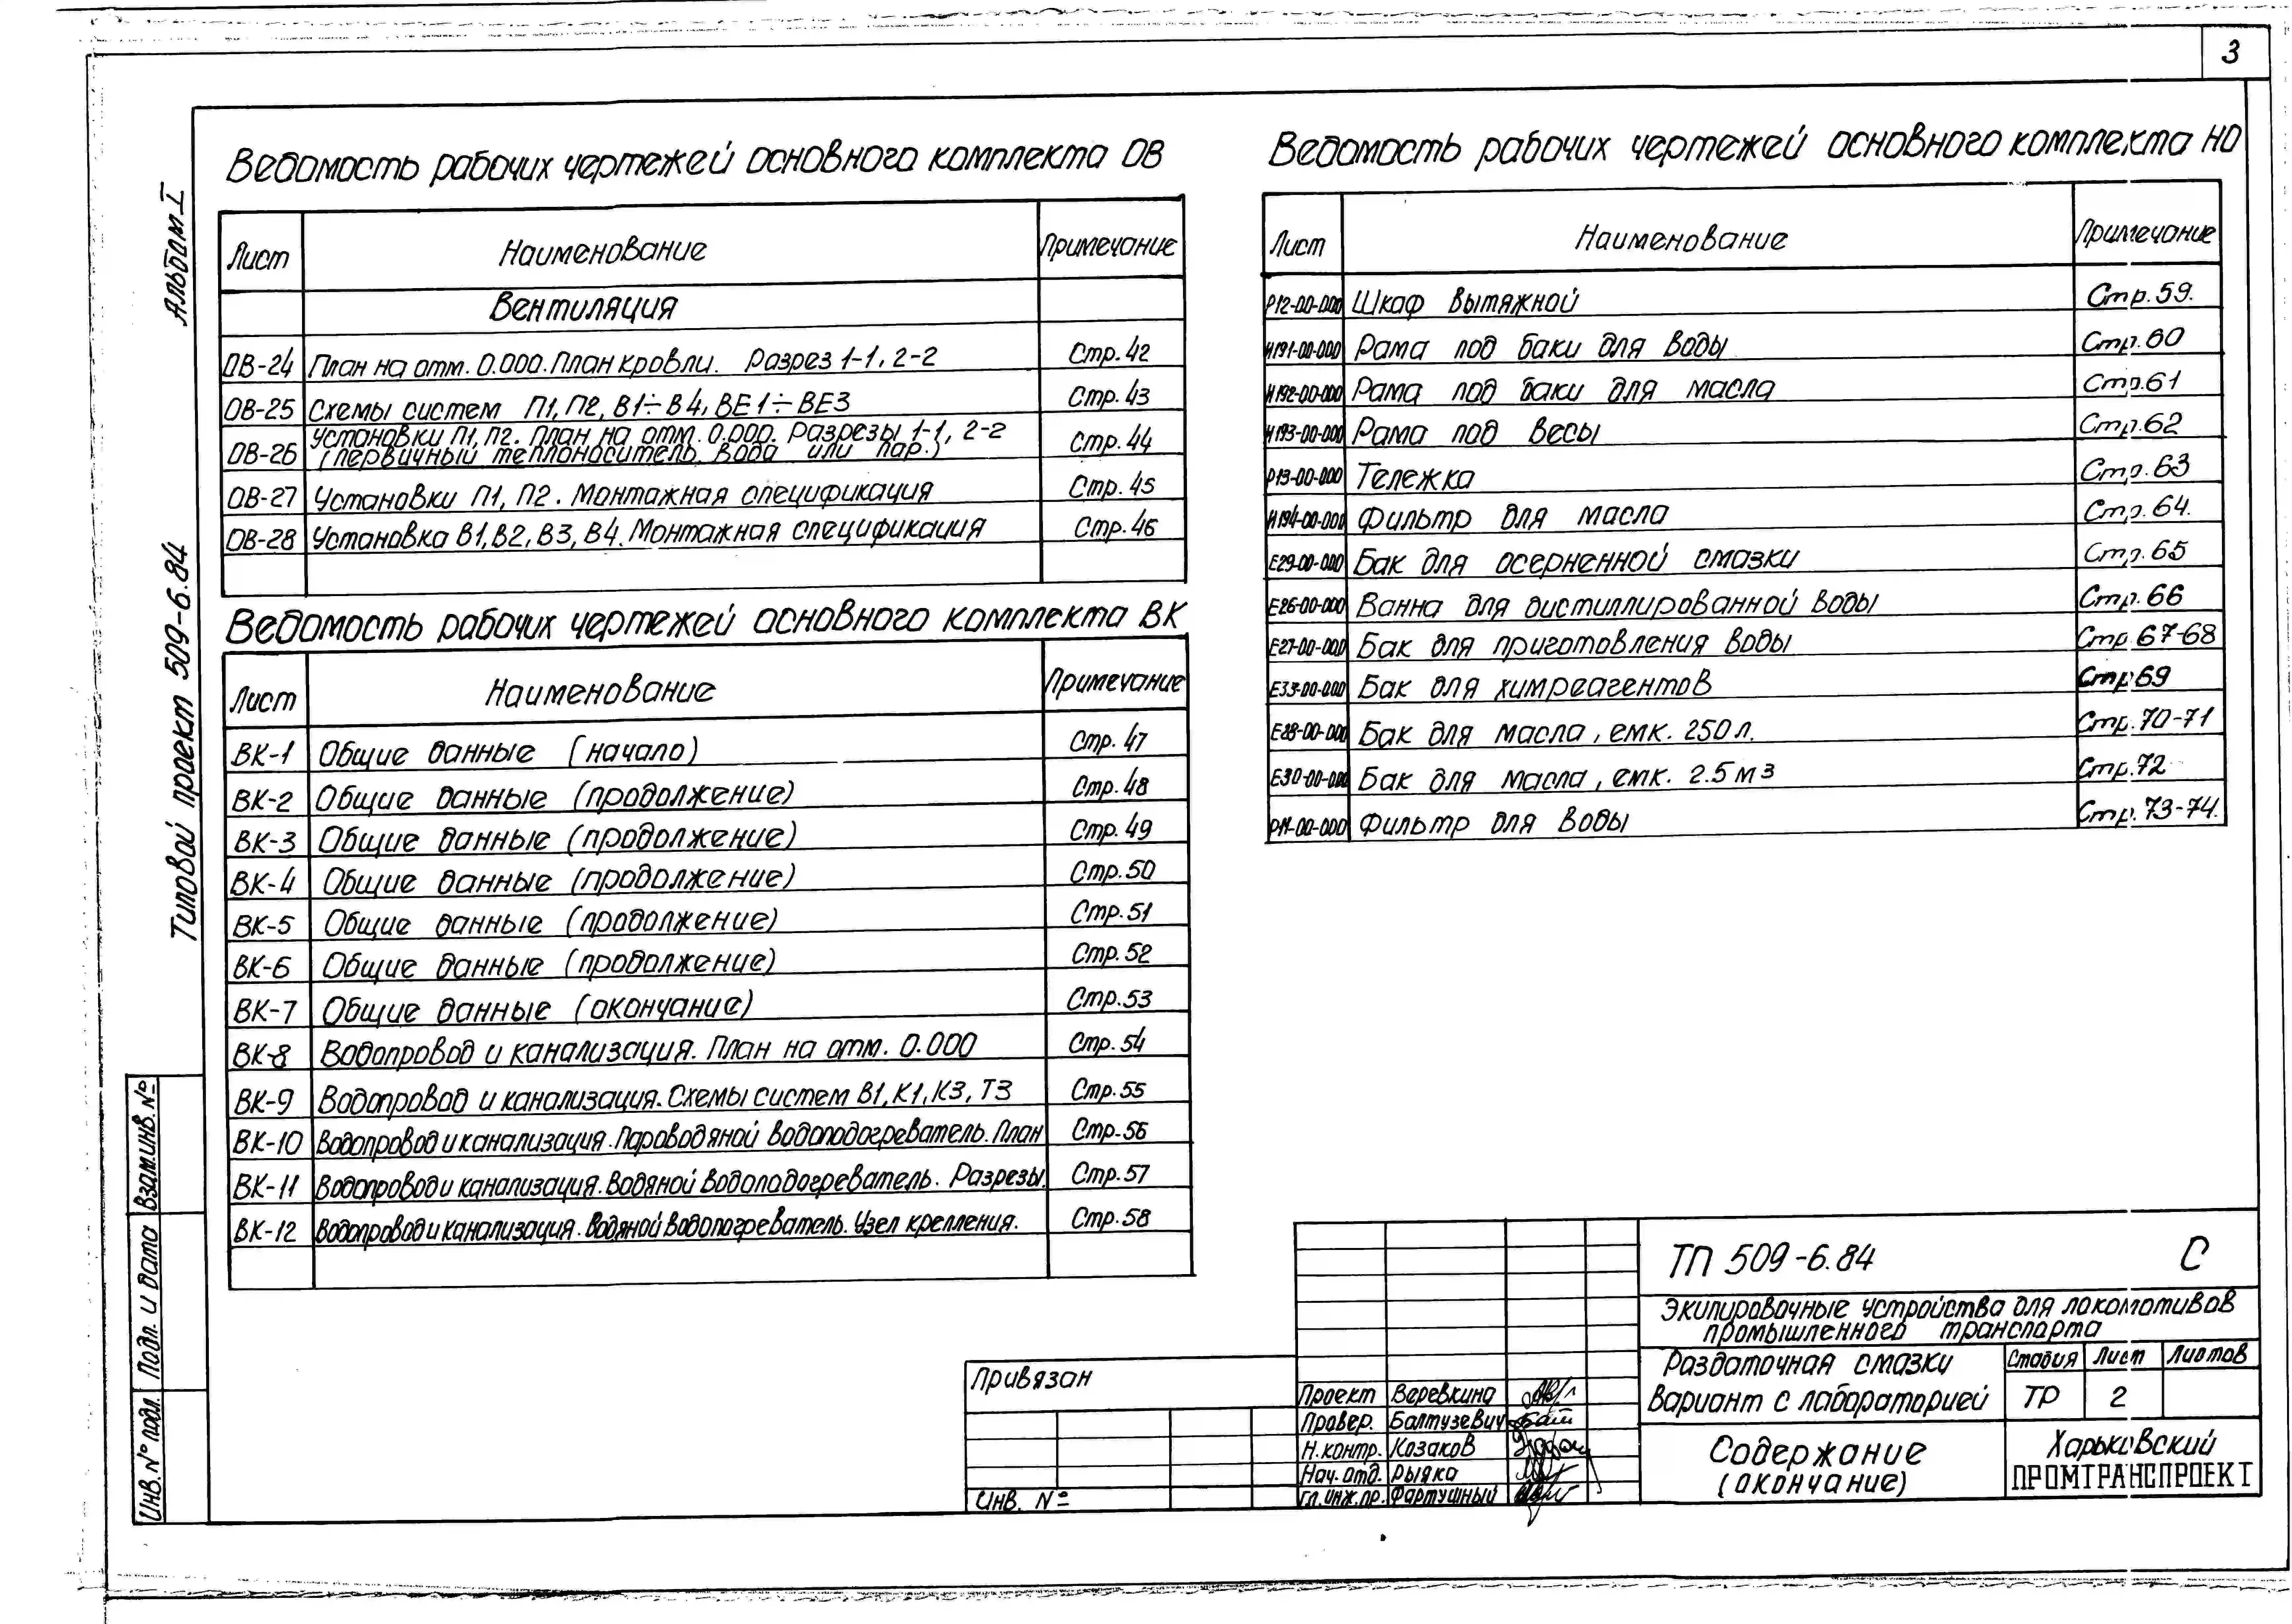 3
Альбом I
Типовой проект 509-6.84
Взам.инв.№
Подп. и дата
Инв.№ подл.
Ведомость рабочих чертежей основного комплекта ОВ
Лист Наименование Примечание
Вентиляция
ОВ-24 План на отм. 0.000. План кровли. Разрез 1-1, 2-2 Стр.42
ОВ-25 Схемы систем П1, П2, В1÷В4, ВЕ1÷ВЕ3 Стр.43
ОВ-26 Установки П1, П2. План на отм. 0.000. Разрезы 1-1, 2-2 Стр.44
(первичный теплоноситель вода или пар.)
ОВ-27 Установки П1, П2. Монтажная спецификация Стр.45
ОВ-28 Установка В1, В2, В3, В4. Монтажная спецификация Стр.46
Ведомость рабочих чертежей основного комплекта ВК
Лист Наименование Примечание
ВК-1 Общие данные (начало) Стр. 47
ВК-2 Общие данные (продолжение) Стр.48
ВК-3 Общие данные (продолжение) Стр.49
ВК-4 Общие данные (продолжение) Стр.50
ВК-5 Общие данные (продолжение) Стр.51
ВК-6 Общие данные (продолжение) Стр.52
ВК-7 Общие данные (окончание) Стр.53
ВК-8 Водопровод и канализация. План на отм. 0.000 Стр.54
ВК-9 Водопровод и канализация. Схемы систем В1, К1, К3, Т3 Стр.55
ВК-10 Водопровод и канализация. Пароводяной водоподогреватель. План Стр.56
ВК-11 Водопровод и канализация. Водяной водоподогреватель. Разрезы. Стр.57
ВК-12 Водопровод и канализация. Водяной водопогреватель. Узел крепления. Стр.58
Ведомость рабочих чертежей основного комплекта НО
Лист Наименование Примечание
Р12-00-000 Шкаф вытяжной Стр.59.
И191-00-000 Рама под баки для воды Стр.60
И192-00-000 Рама под баки для масла Стр.61
И193-00-000 Рама под весы Стр.62
Р13-00-000 Тележка Стр.63
И194-00-000 Фильтр для масла Стр.64.
Е29-00-000 Бак для осерненной смазки Стр.65
Е26-00-000 Ванна для дистиллированной воды Стр.66
Е27-00-000 Бак для приготовления воды Стр.67-68
Е33-00-000 Бак для химреагентов Стр.69
Е28-00-000 Бак для масла, емк. 250л. Стр.70-71
Е30-00-000 Бак для масла, емк. 2.5м3 Стр.72
Р11-00-000 Фильтр для воды Стр.73-74.
Привязан
Инв. №
Проект Веревкина
Провер. Балтузевич
Н.контр. Козаков
Нач.отд. Рыяка
Гл.инж.пр. Фартушный
ТП 509-6.84 С
Экипировочные устройства для локомотивов
промышленного транспорта
Раздаточная смазки
Вариант с лабораторией
Стадия Лист Листов
ТР 2
Содержание
(окончание)
Харьковский
ПРОМТРАНСПРОЕКТ